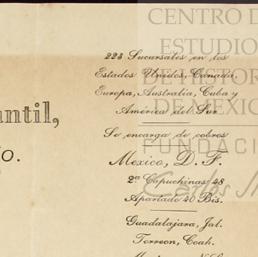 CENTRO D
ESTUDIO
DE HISTOR
DE MEXIC
FUNDACI
228 Sucursales en los
Estados Unidos, Canada
Europa, Australia, Cuba y
América del Sur
Se encarga de cobros
Mexico, D. F.
2a Capuchinas 48
Apartado 40 Bis.
Guadalajara, Jal.
Torreon, Coah.
antil,
O.